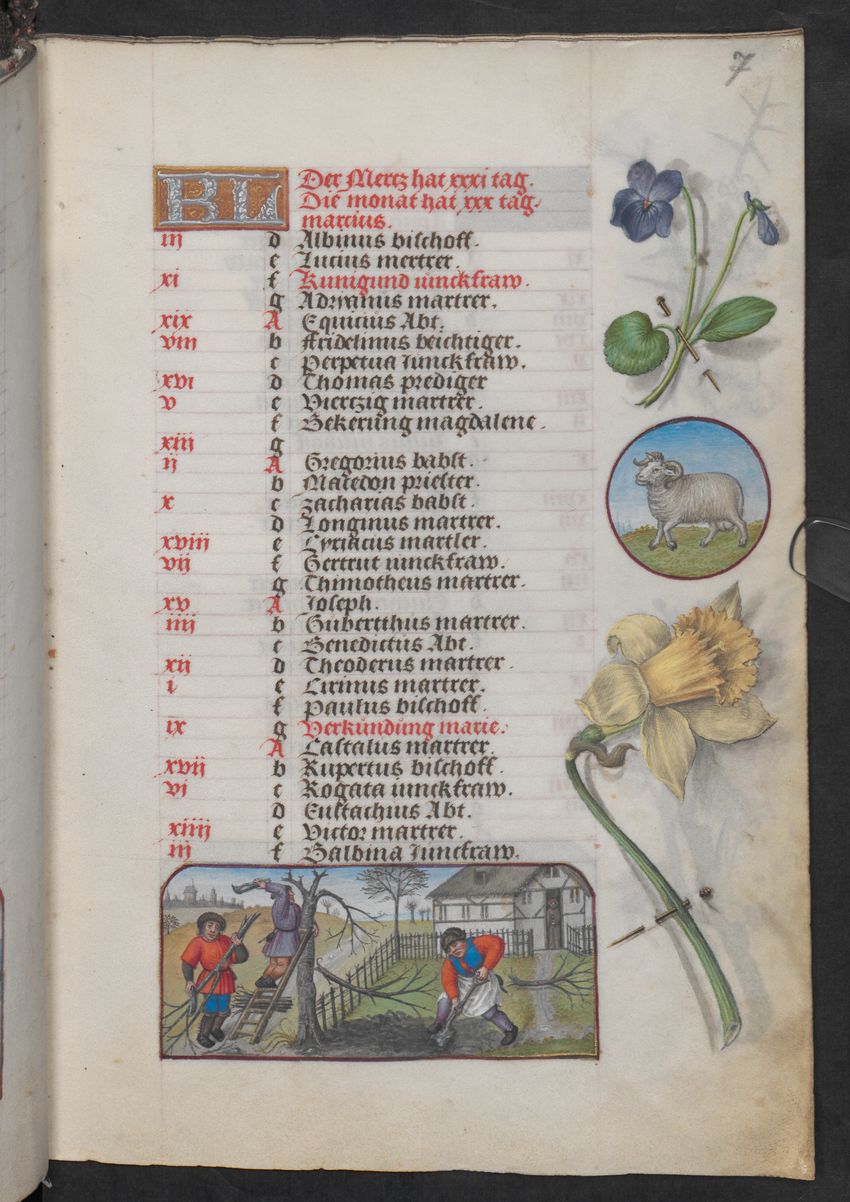 7
KL Der Mertz hat xxxi tag.
Die monat hat xxx tag.
marcius.
iii d Albinus bischoff.
e Lucius mertrer.
xi f Kunigund iunckfraw.
g Adrianus martrer.
xix A Equicius Abt.
viii b ffridelinus beichtiger.
c Perpetua Junckfraw.
xvi d Thomas prediger
v e Viertzig martrer.
f Bekerung magdalene.
xiii g
ii A Gregorius babst.
b Macedon priester.
x c Zacharias babst.
d Longinus martrer.
xviii e Cyriacus martler.
vii f Gertrut iunckfraw.
g Thimotheus martrer.
xv A Joseph.
iiii b Gubertthus martrer.
c Benedictus Abt.
xii d Theoderus martrer.
i e Cirinus martrer.
f Paulus bischoff.
ix g Verkündung marie.
A Castalus martrer.
xvii b Rupertus bischoff.
vi c Rogata iunckfraw.
d Eustachius Abt.
xiiii e Victor martrer.
iii f Balbina Junckfraw.